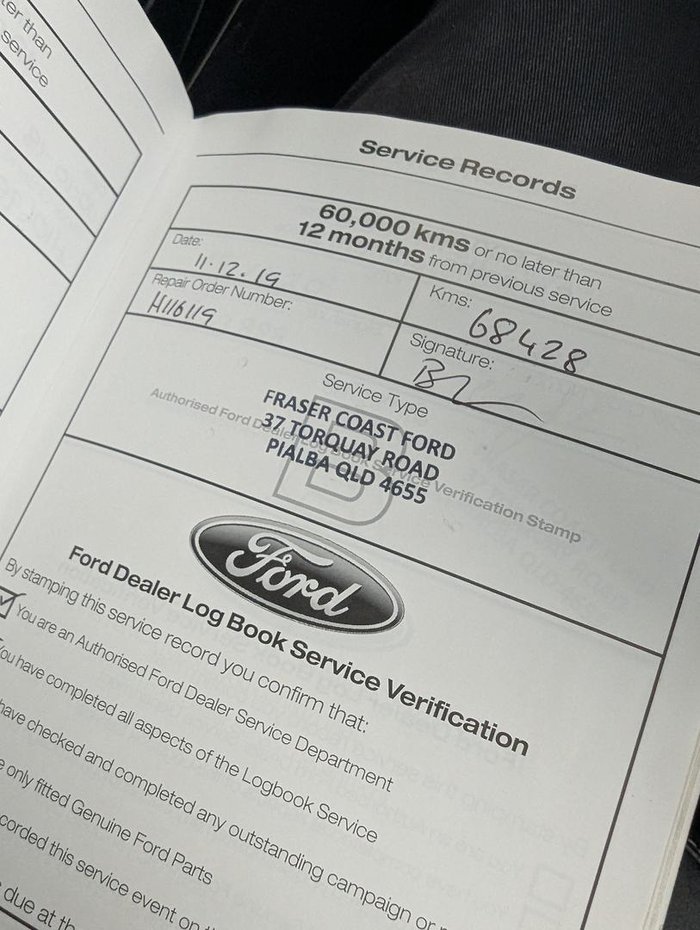 ter than
service
Service Records
60,000 kms or no later than
12 months from previous service
Date:
11.12.19
Kms:
68428
Repair Order Number:
H116119
Signature:
Service Type
B
Authorised Ford Dealer Log Book Service Verification Stamp
FRASER COAST FORD
37 TORQUAY ROAD
PIALBA QLD 4655
Ford
Ford Dealer Log Book Service Verification
By stamping this service record you confirm that:
You are an Authorised Ford Dealer Service Department
ou have completed all aspects of the Logbook Service
have checked and completed any outstanding campaign or
e only fitted Genuine Ford Parts
corded this service event on
due at th